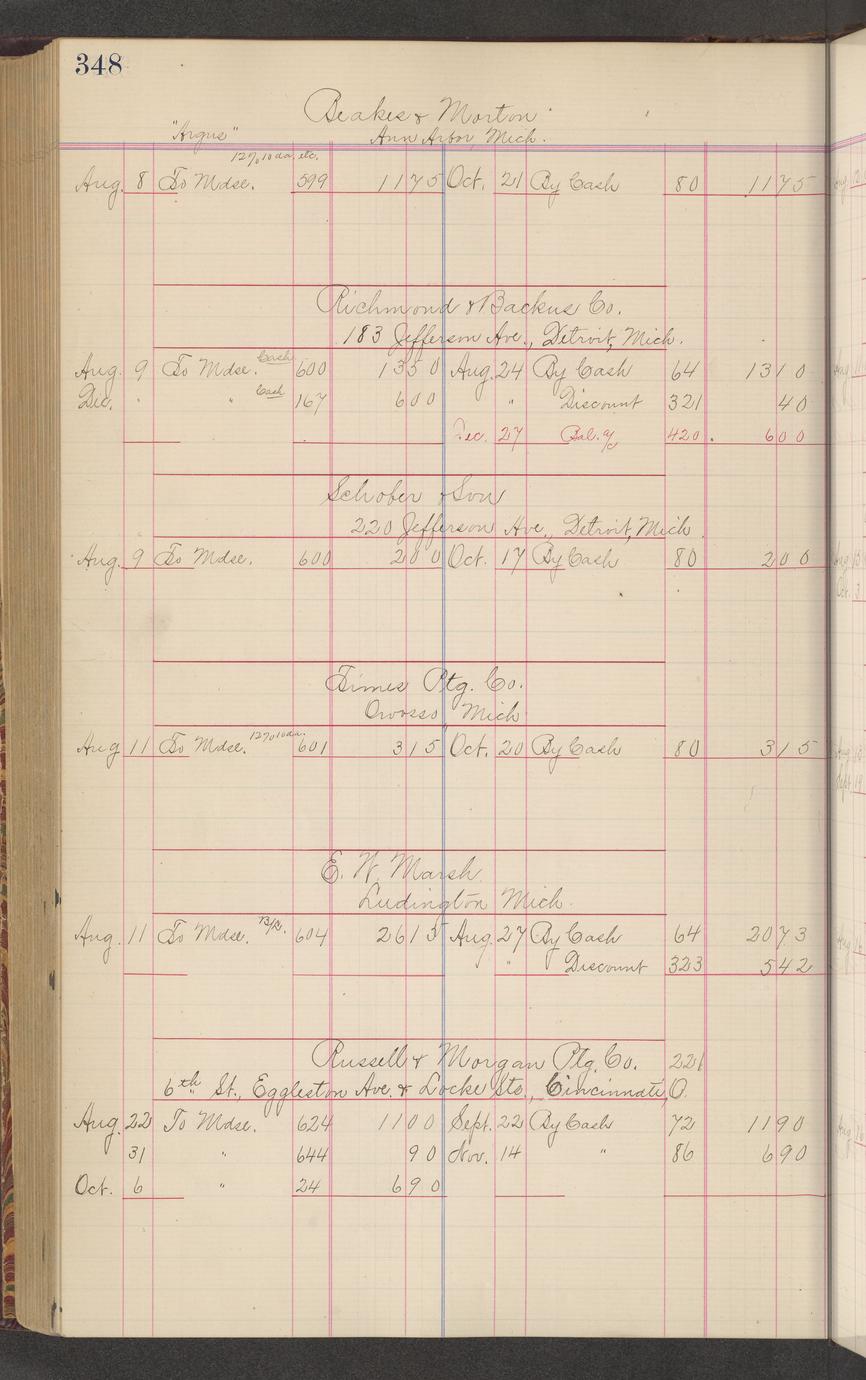 348
Beakes & Morton
"Argus" Ann Arbor Mich.
12% 10 da. etc.
Aug. 8 To Mdse. 599 11 75 Oct. 21 By Cash 80 11 75
Richmond & Backus Co.
183 Jefferson Ave., Detroit, Mich.
Aug. 9 To Mdse. Cash 600 13 50 Aug. 24 By Cash 64 13 10
Dec. " " Cash 167 6 00 " Discount 321 40
Dec. 27 Bal. a/c 420 6 00
Schober & Son
220 Jefferson Ave., Detroit, Mich.
Aug. 9 To Mdse. 600 2 00 Oct. 17 By Cash 80 2 00
Times Ptg. Co.
Owosso Mich.
Aug 11 To Mdse. 12% 10 da. 601 3 15 Oct. 20 By Cash 80 3 15
E. W. Marsh
Ludington Mich.
Aug. 11 To Mdse. 604 26 15 Aug. 27 By Cash 64 20 73
" Discount 323 5 42
Russell & Morgan Ptg. Co. 221
6th St., Eggleston Ave. & Locke Sts., Cincinnati, O.
Aug. 22 To Mdse. 624 11 00 Sept. 22 By Cash 72 11 90
31 " 644 90 Nov. 14 " 86 6 90
Oct. 6 " 24 6 90